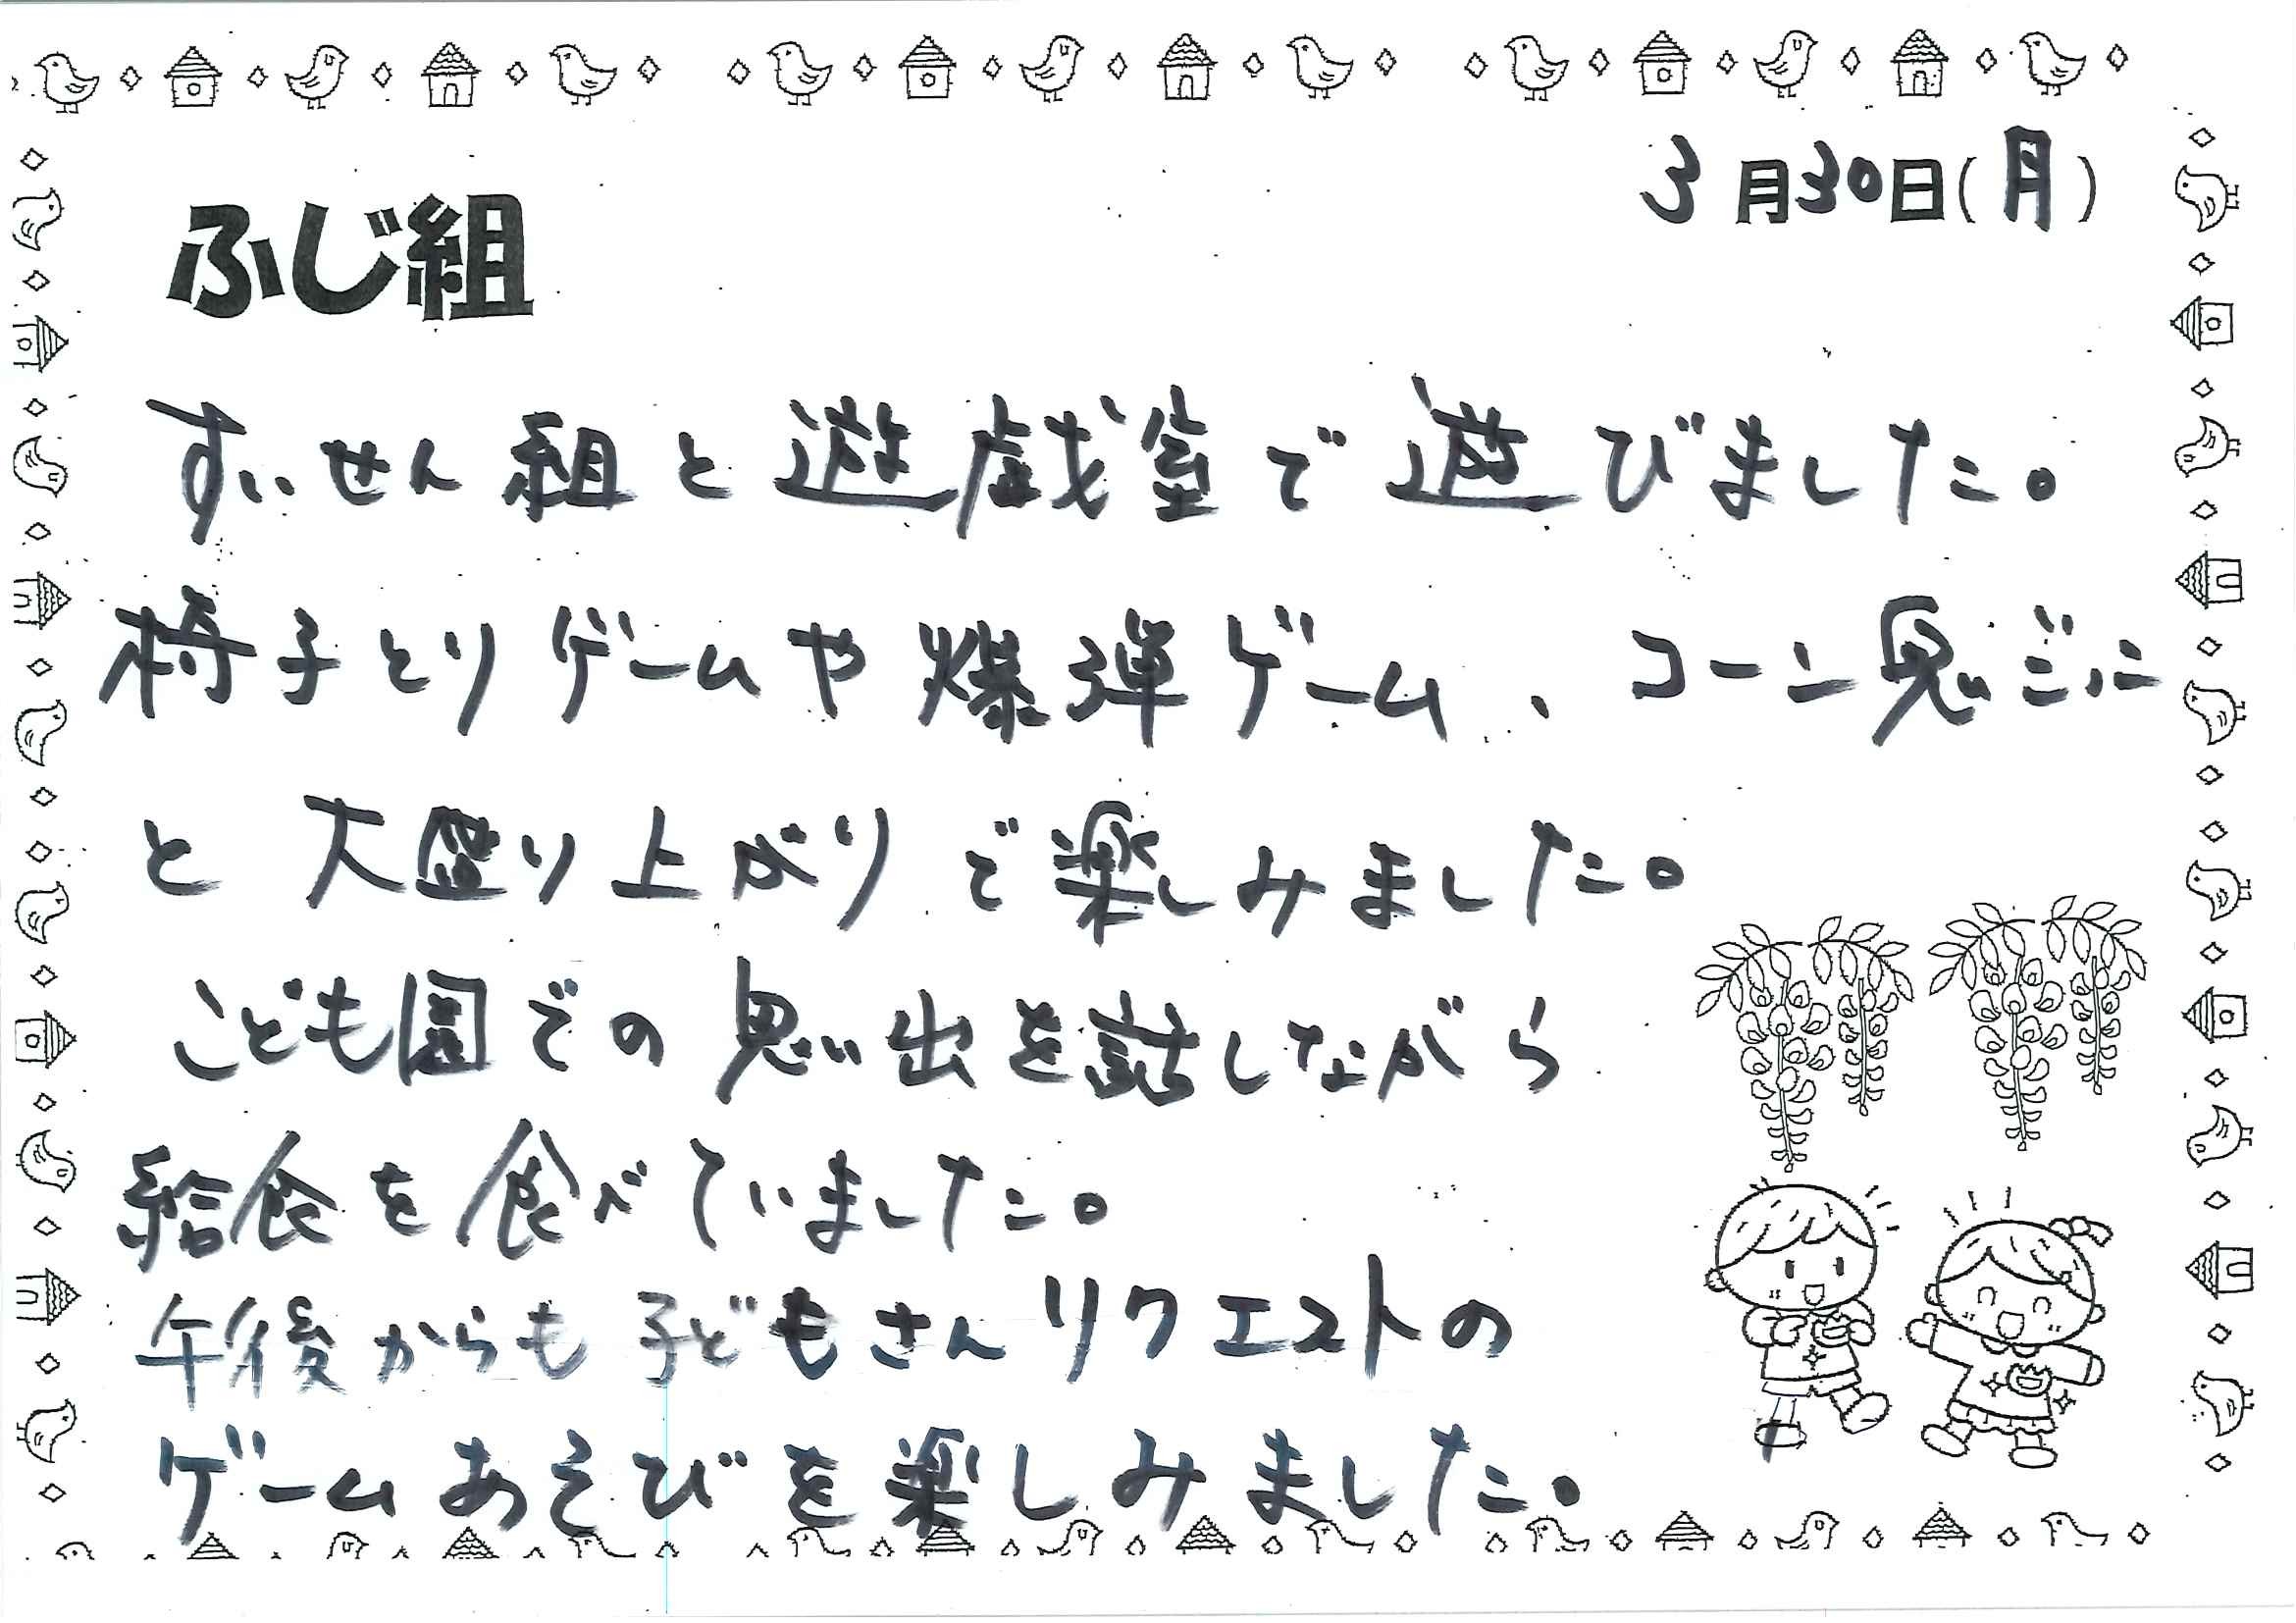 3月30日(月)
ふじ組
すいせん組と遊戯室で遊びました。
椅子とりゲームや爆弾ゲーム、コーン鬼ごっこ
と大盛り上がりで楽しみました。
こども園での思い出を話しながら
給食を食べていました。
午後からも子どもさんリクエストの
ゲームあそびを楽しみました。